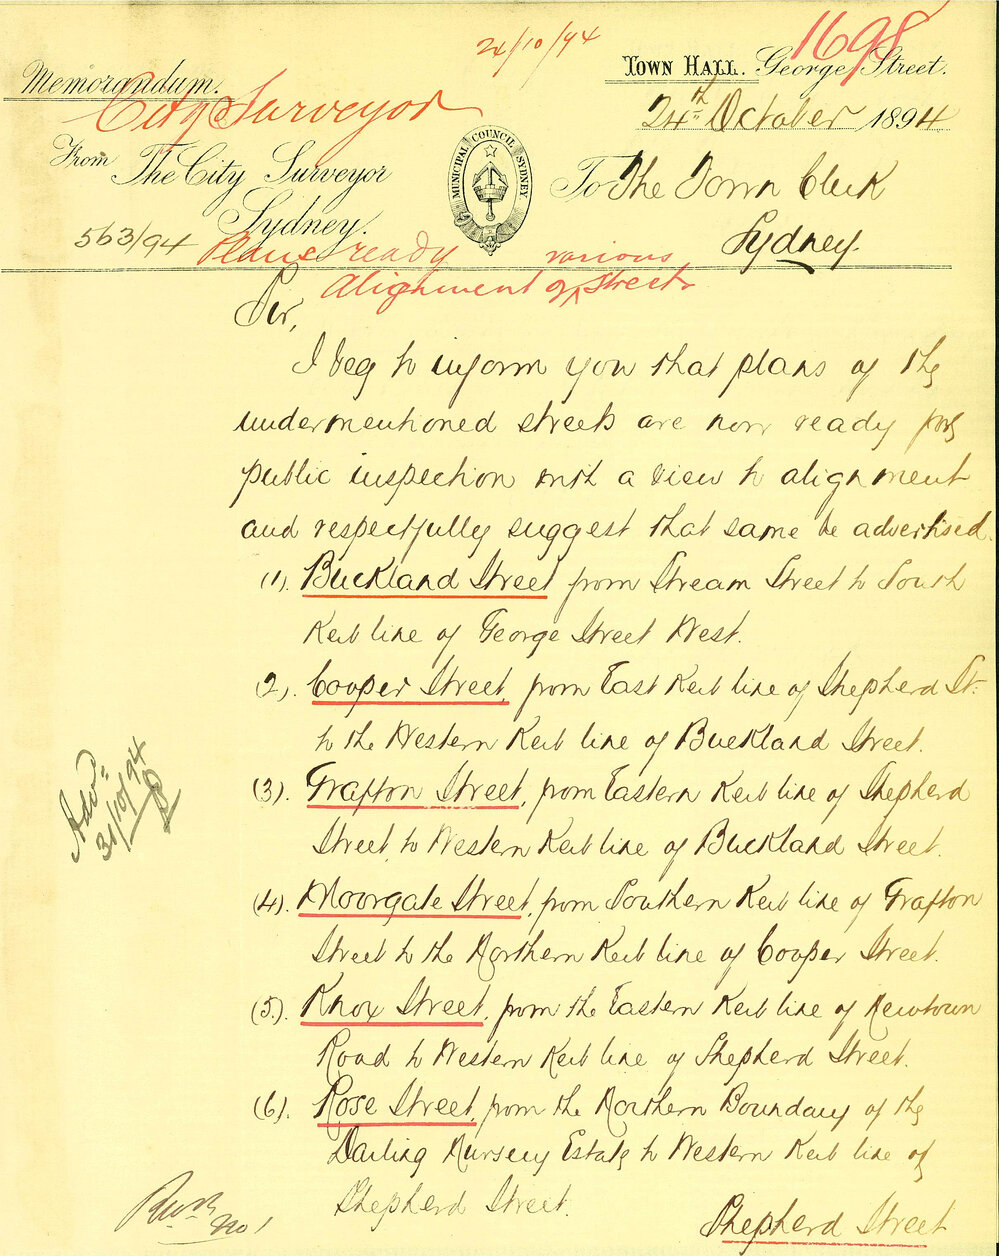 24/10/94
1698
Memorandum.
Town Hall. George Street.
City Surveyor
24th October 1894
From The City Surveyor
Sydney.
MUNICIPAL COUNCIL SYDNEY
To The Town Clerk
Sydney.
563/94
Plans ready various
Alignment of ^ Streets
Sir,
I beg to inform you that plans of the
undermentioned streets are now ready for
public inspection with a view to alignment
and respectfully suggest that same be advertised.
(1). Buckland Street from Stream Street to South
Kerb line of George Street West.
(2). Cooper Street, from East Kerb line of Shepherd St.
to the Western Kerb line of Buckland Street.
(3). Grafton Street, from Eastern Kerb line of Shepherd
Street, to Western Kerb line of Buckland Street.
(4). Moorgate Street, from Southern Kerb line of Grafton
Street to the Northern Kerb line of Cooper Street.
(5). Knox Street, from the Eastern Kerb line of Newtown
Road to Western Kerb line of Shepherd Street.
(6). Rose Street, from the Northern Boundary of the
Darling Nursery Estate to Western Kerb line of
Shepherd Street.
Shepherd Street
Advd.
31/10/94
No 1